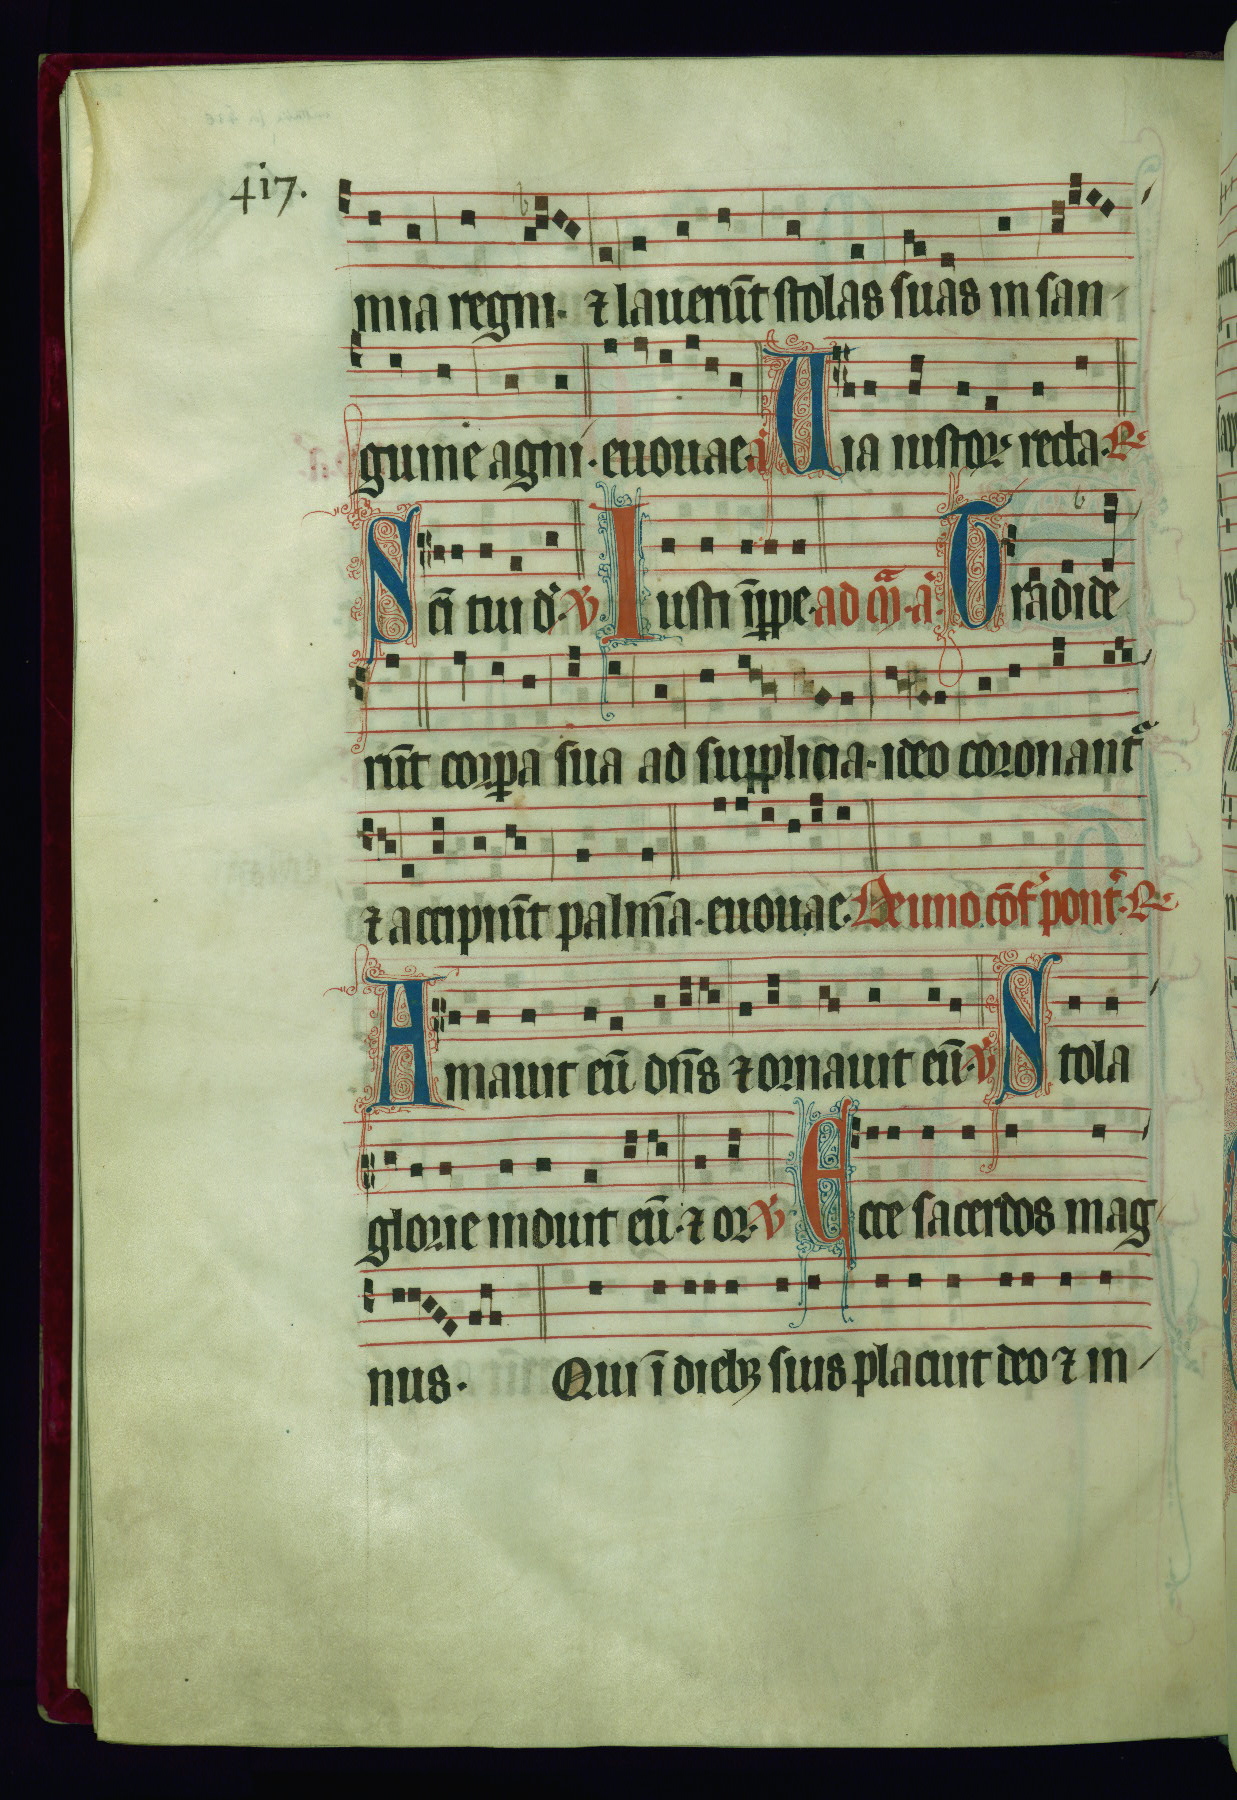 417.
mia regni. ⁊ lauerūt stolas suas in san
guine agni. euouae a̍ Uia iustoꝝ recta. ℟
Sc̄i tui dn̍ ℣ Iusti ī ꝑpe. ad cȳ. a̍. Tradide
rūt corꝑa sua ad supplicia. ideo coronant᷑
⁊ accipiūt palmā. euouae. De uno cōf̍ pont̍. ℟
Amauit eū dn̄s ⁊ ornauit eū. ℣ Stola
glorie induit eū. ⁊ or. ℣ Ecce sacerdos mag
nus. Qui ī diebꝫ suis placuit deo ⁊ in